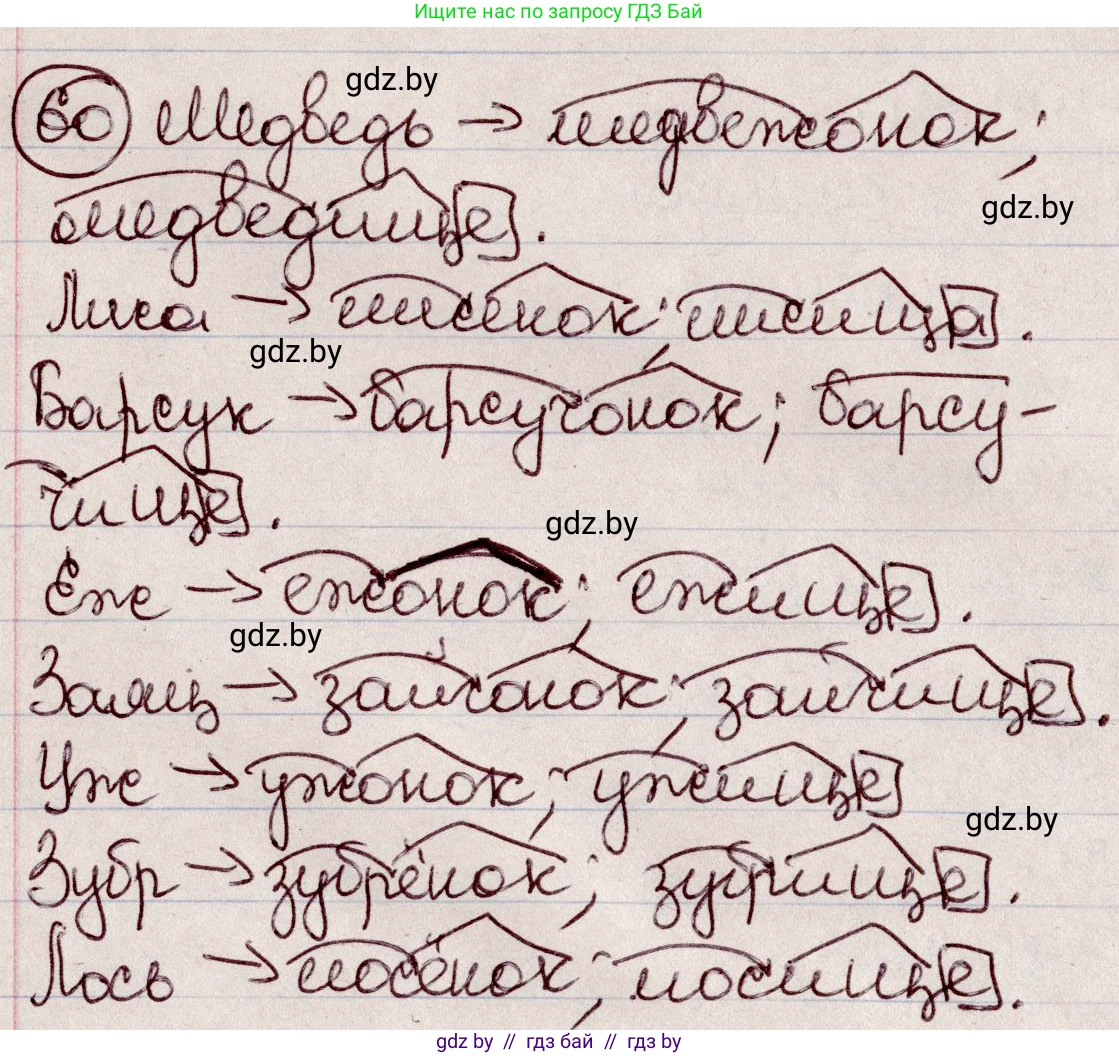 Ищите нас по запросу ГДЗ Бай
gdz.by
60 Медведь → медвежонок;
gdz.by
медведище.
Лиса → лисёнок; лисица.
gdz.by
Барсук → барсучонок; барсу-
чище.
gdz.by
Ёж → ежонок; ежище.
gdz.by
Заяц → зайчонок; зайчище.
Уж → ужонок; ужище
gdz.by
Зубр → зубрёнок; зубрище.
Лось → лосёнок; лосище.
gdz.by // гдз бай // гдз by